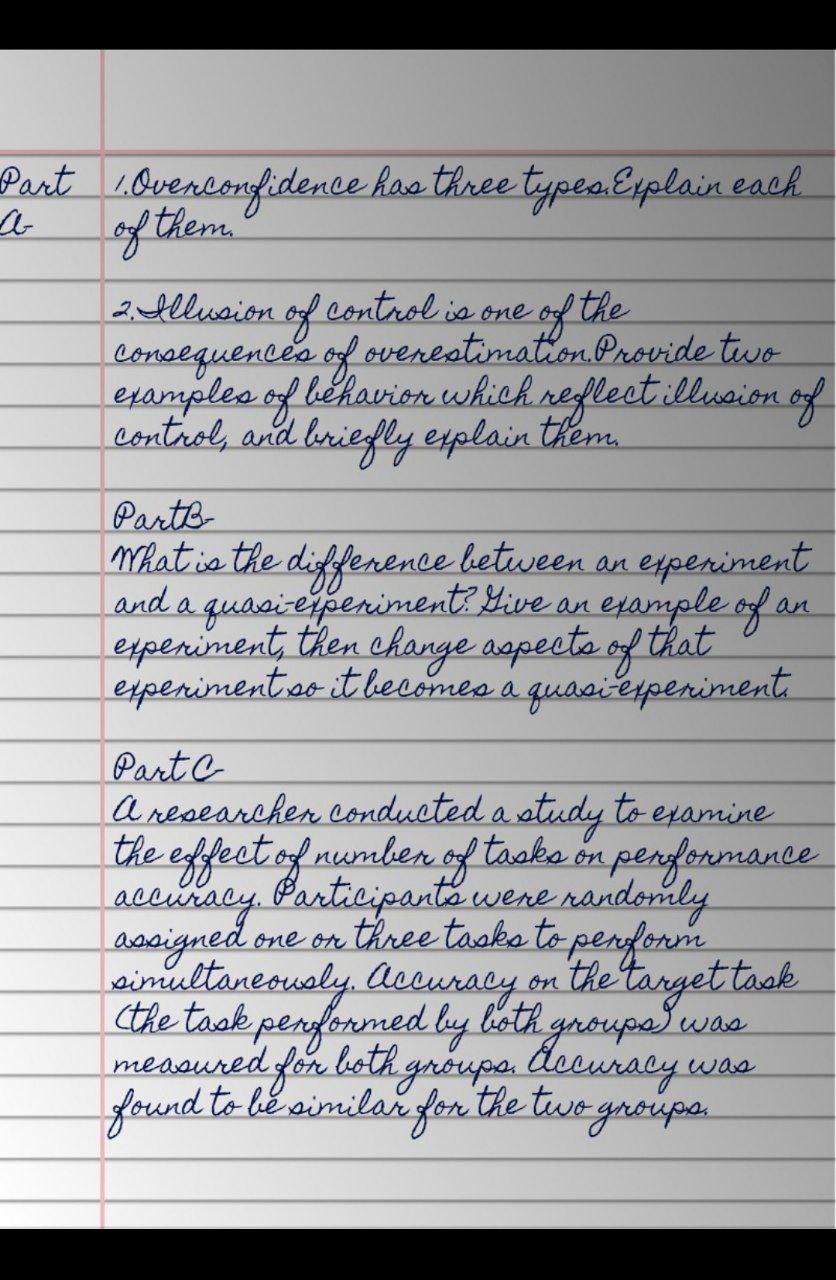 Part
A-
1.Overconfidence has three types.Explain each
of them.
2.Illusion of control is one of the
consequences of overestimation.Provide two
examples of behavior which reflect illusion of
control, and briefly explain them.
PartB-
What is the difference between an experiment
and a quasi-experiment? Give an example of an
experiment, then change aspects of that
experiment so it becomes a quasi-experiment.
Part C-
A researcher conducted a study to examine
the effect of number of tasks on performance
accuracy. Participants were randomly
assigned one or three tasks to perform
simultaneously. Accuracy on the target task
(the task performed by both groups) was
measured for both groups. Accuracy was
found to be similar for the two groups.